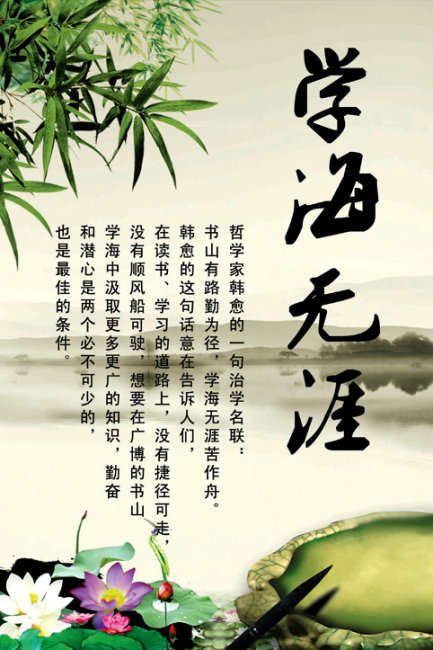 学海无涯
哲学家韩愈的一句治学名联：
书山有路勤为径，学海无涯苦作舟。
韩愈的这句话意在告诉人们，
在读书、学习的道路上，没有捷径可走，
没有顺风船可驶，想要在广博的书山
学海中汲取更多更广的知识，勤奋
和潜心是两个必不可少的，
也是最佳的条件。